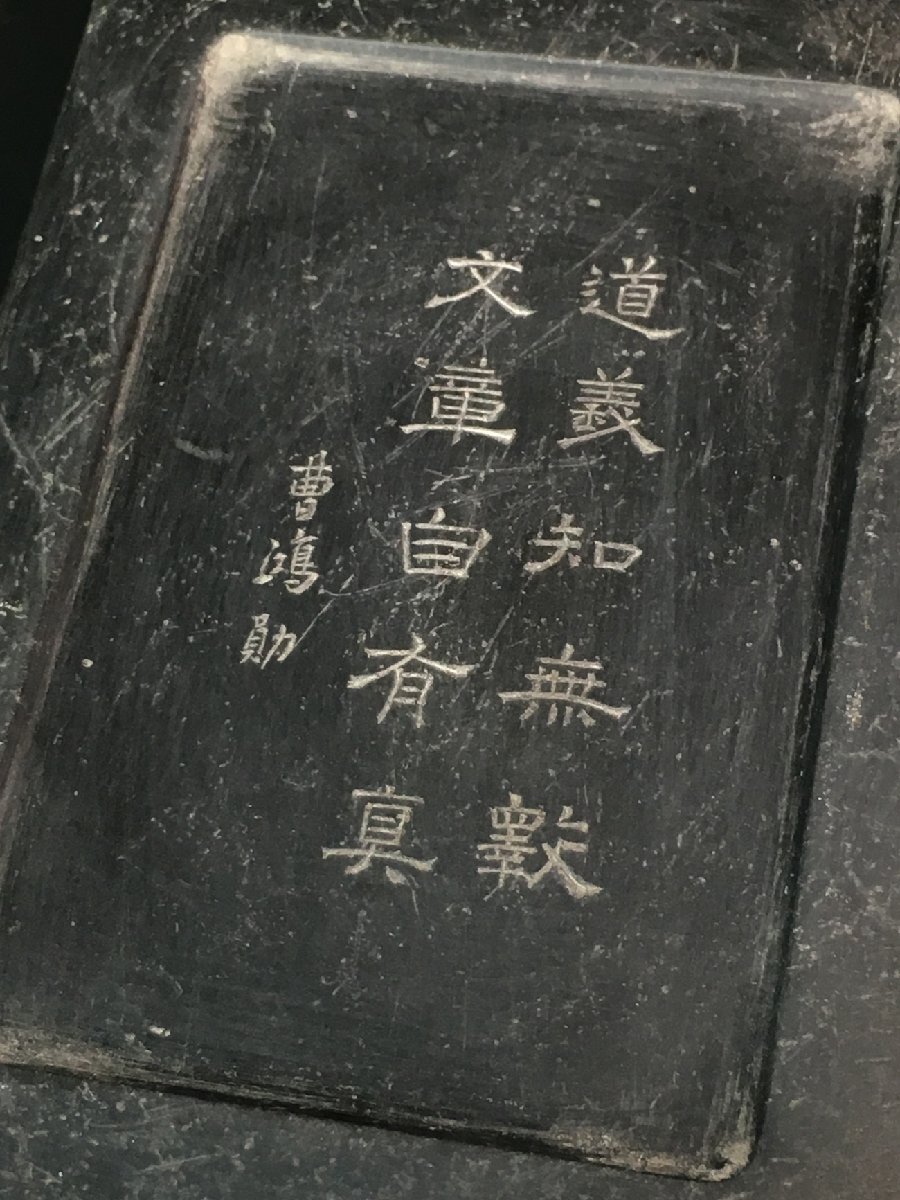 道義知無斁
文章自有真
曹鴻勛